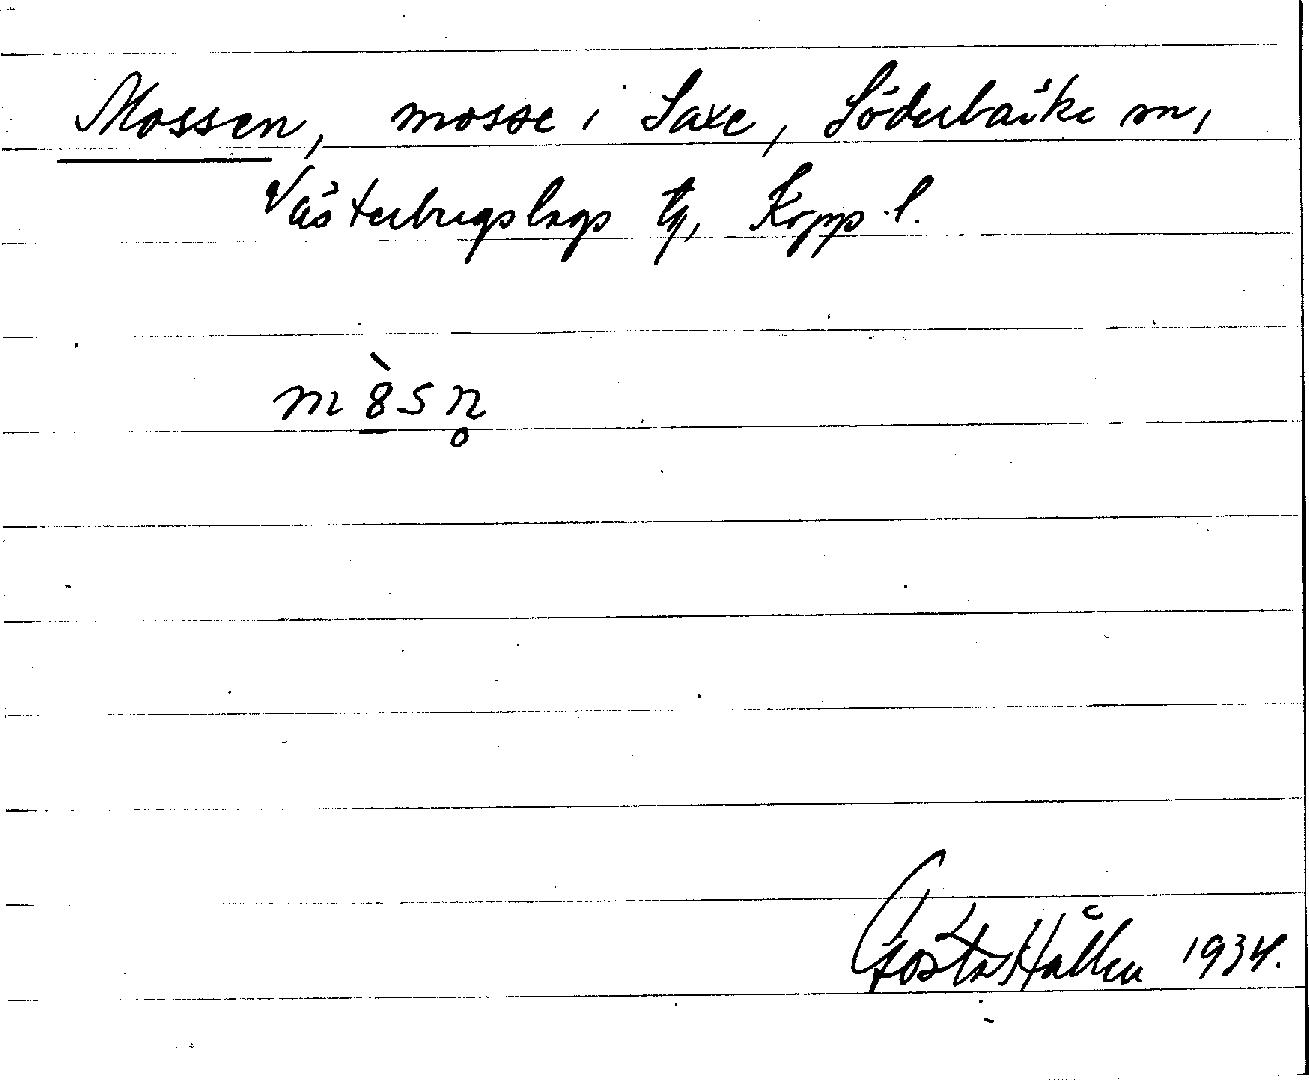 Mossen, mosse i Saxe, Söderbärke sn,
Västerbergslags tg, Kopp. l.
m 8̱̀ s n̥
Gösta Hållen 1934.